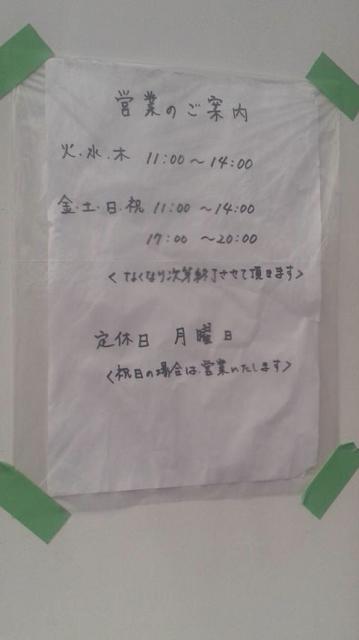 営業のご案内
火.水.木 11:00～14:00
金.土.日.祝 11:00～14:00
17:00 ～20:00
<なくなり次第終了させて頂きます>
定休日 月曜日
<祝日の場合は営業いたします>